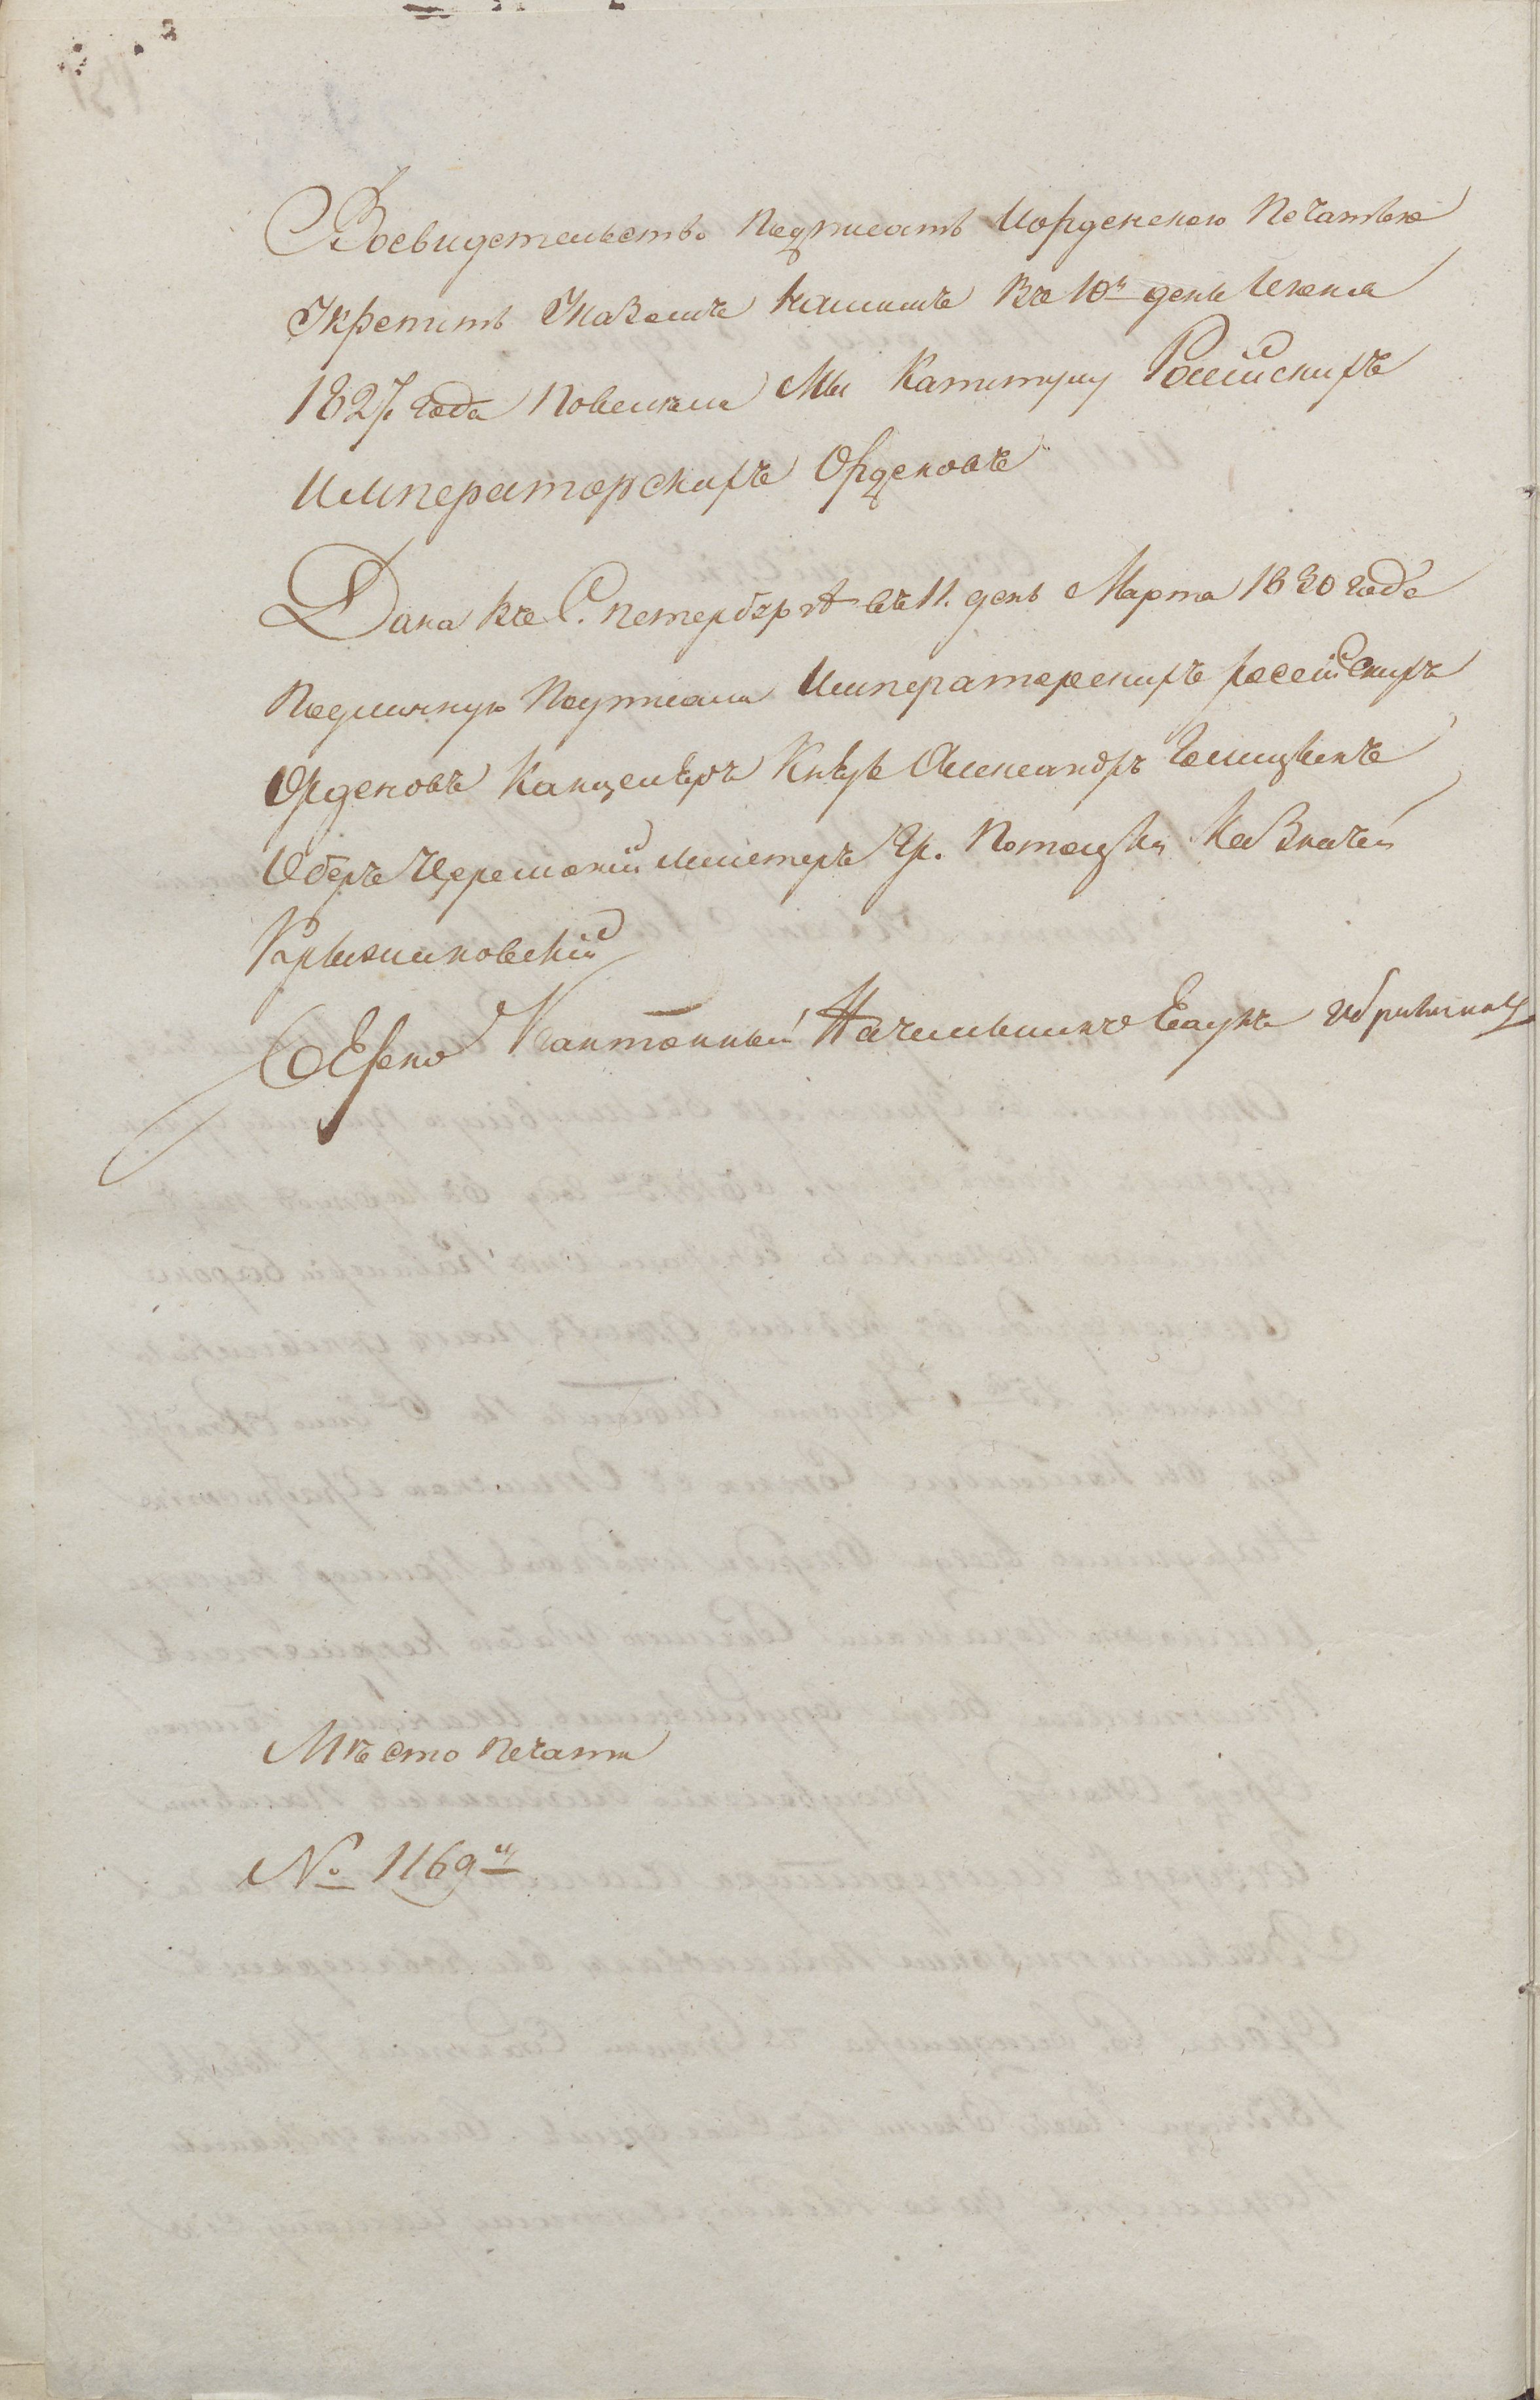 Восвидетельство подписать Иорденскою Печатью
Укрепить Указомъ Нашимъ Въ 10й день Июня
1827 года Повелели Мы Капитулу Россiискихъ
Императорскихъ Орденовъ
Дана Въ С. петербурге въ 11. день Марта 1830 года
Подлинную Подписали Императорскихъ россiискихъ
Орденовъ Канцелеръ Князь Александръ Голицынъ
Оберъ Церемонiи мистеръ Гр. Потоцки Казначеи
Крыжановскiи
Верно Кантонный Началникъ Есаулъ
Место печати
№ 1169й